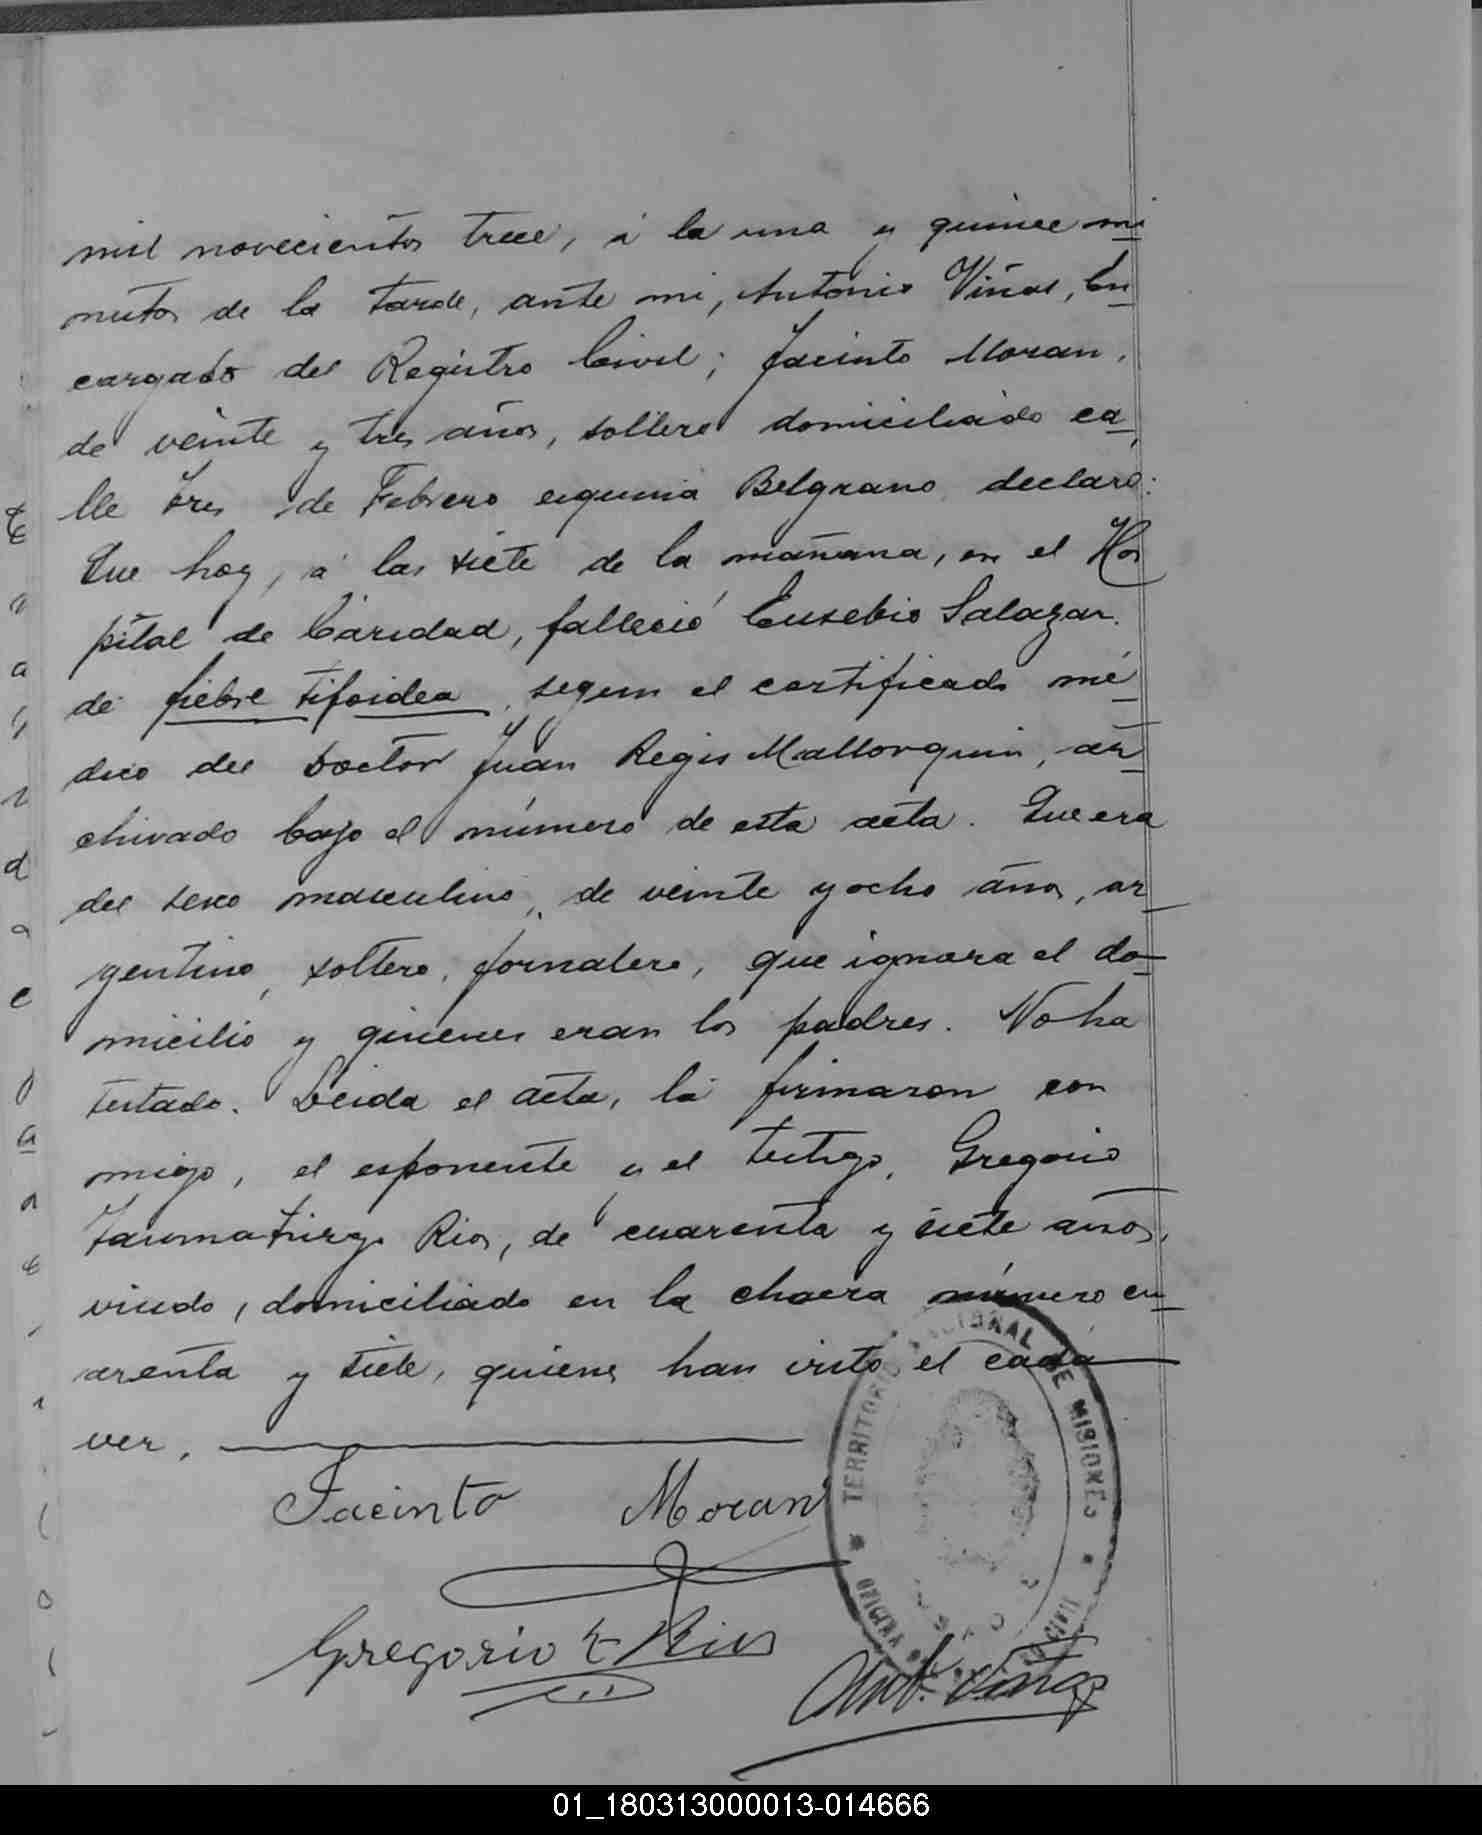 mil novecientos trece, á la una y quince mi
nutos de la tarde, ante mi, Antonio Viñas, En
cargado del Registro Civil; Jacinto Moran,
de veinte y tres años, soltero domiciliado ca
lle tres de Febrero esquina Belgrano, declaró:
Que hoy, á las siete de la mañana, en el Hos
pital de Caridad, falleció Eusebio Salazar.
de fiebre tifoidea, segun el certificado mé
dico del Doctor Juan Regis Mallorquin, ar
chivado bajo el número de esta acta. Que era
del sexo masculino, de veinte y ocho años, ar
gentino, soltero, jornalero, que ignora el do
micilio y quienes eran los padres. No ha
testado. Leida el acta, la firmaron con
migo, el esponente y el testigo, Gregorio
Taumaturgo Rios, de cuarenta y siete años,
viudo, domiciliado en la chacra número cu
arenta y siete, quienes han visto el cadá
ver.
Jacinto Moran
Gregorio T Rios
Ant. Viñas
TERRITORIO NACIONAL DE MISIONES
OFICINA CIVIL
01_180313000013-014666